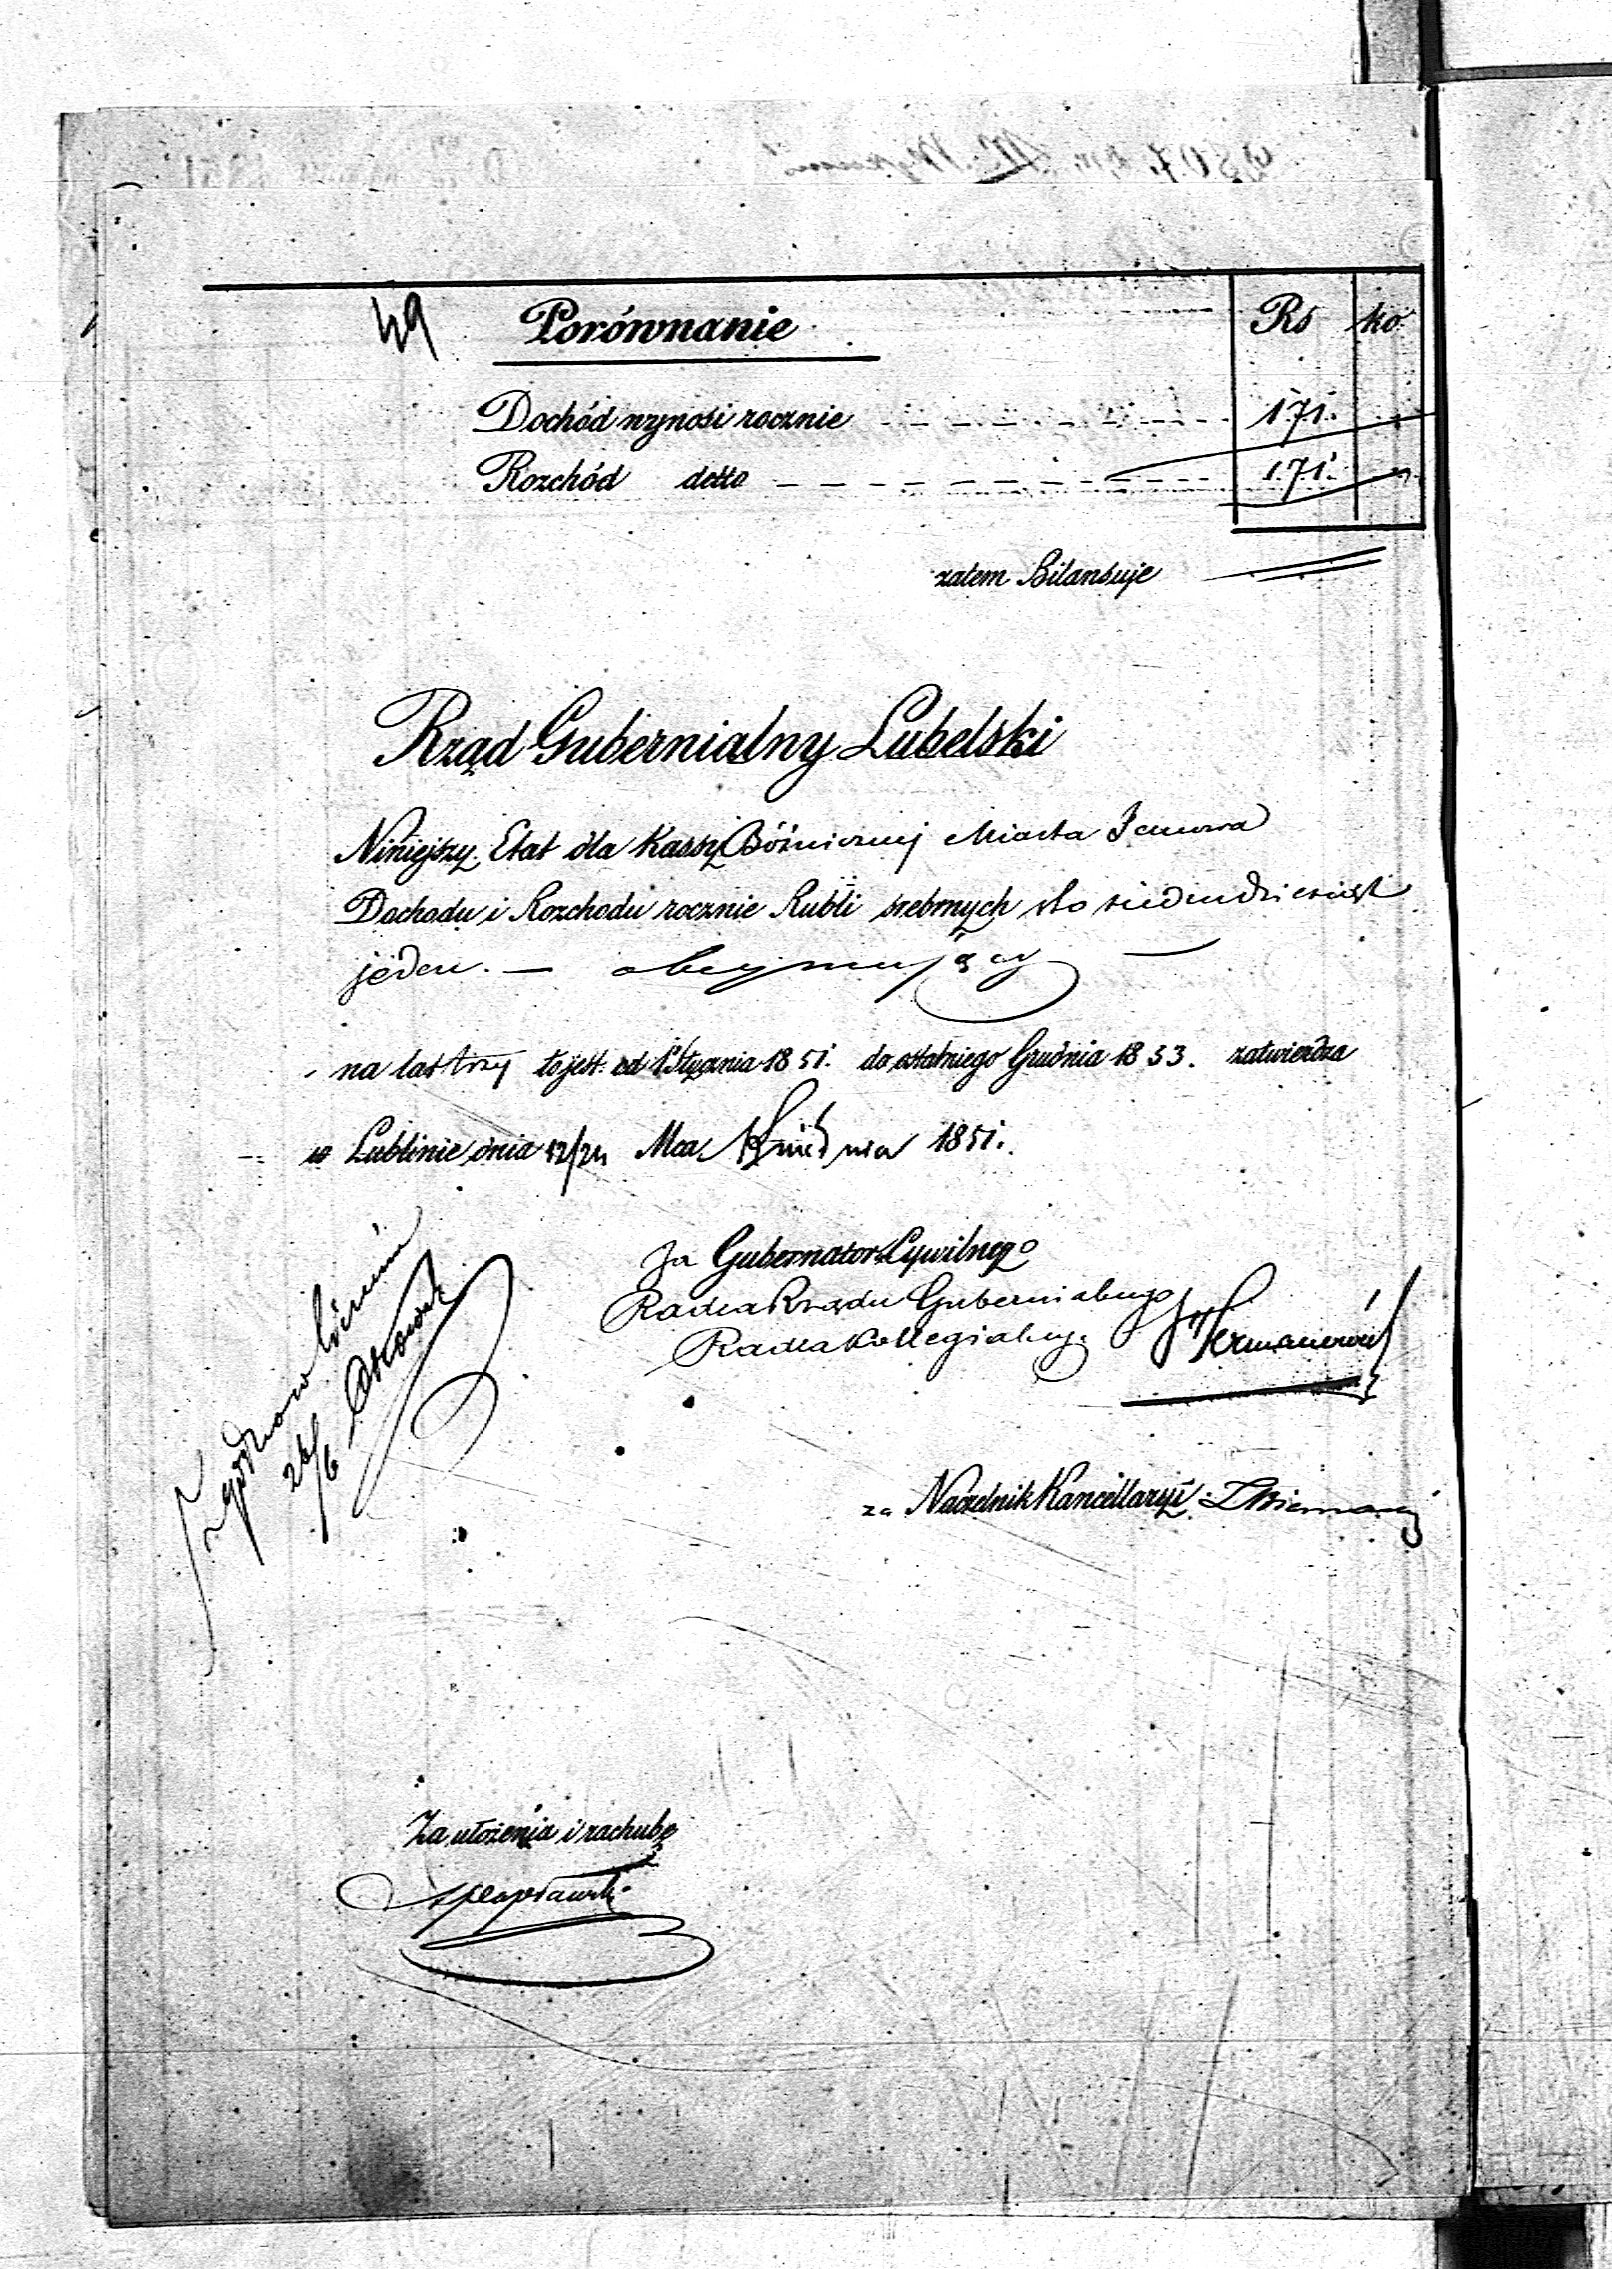 49 Porównanie Rs ko.
Dochód wynosi rocznie 171.
Rozchód detto 171.
zatem Bilansuje
Rząd Gubernialny Lubelski
Niniejszy Etat dla Kassy Bóżniczney Miasta Janowa
Dochodu i Rozchodu rocznie Rubli srebrnych sto siedmdziesiąt
jeden. — obeymujący —
na lat trzy to jest: od 1 Stycznia 1851. do ostatniego Grudnia 1853. zatwierdza
w Lublinie dnia 12/24 Mca Kwietnia 1851.
Za Gubernatora Cywilnego
Radca Rządu Gubernialnego
Radca Kollegialny.
za Naczelnik Kancellaryi
26/6
Za ułożenia i rachubę